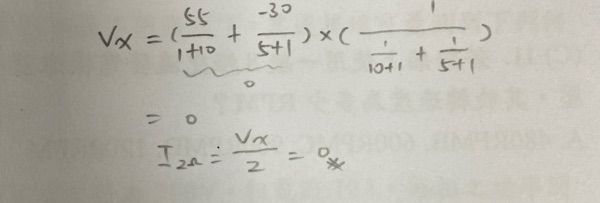 Vx = (55/(1+10) + -30/(5+1)) × (1/(1/(10+1) + 1/(5+1)))
0
= 0
I2Ω = Vx/2 = 0※